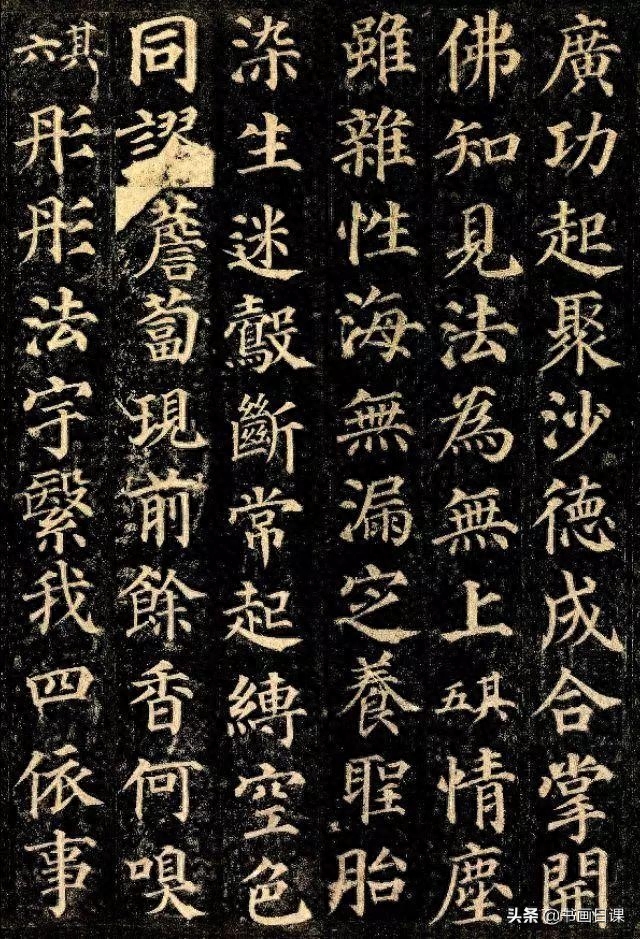 廣功起聚沙德成合掌開
佛知見法為無上其五情塵
雖雜性海無漏㝎養聖胎
染生迷鷇斷常起縛空色
同謬薝蔔現前餘香何嗅
其六彤彤法宇繄我四依事
头条 @书画日课